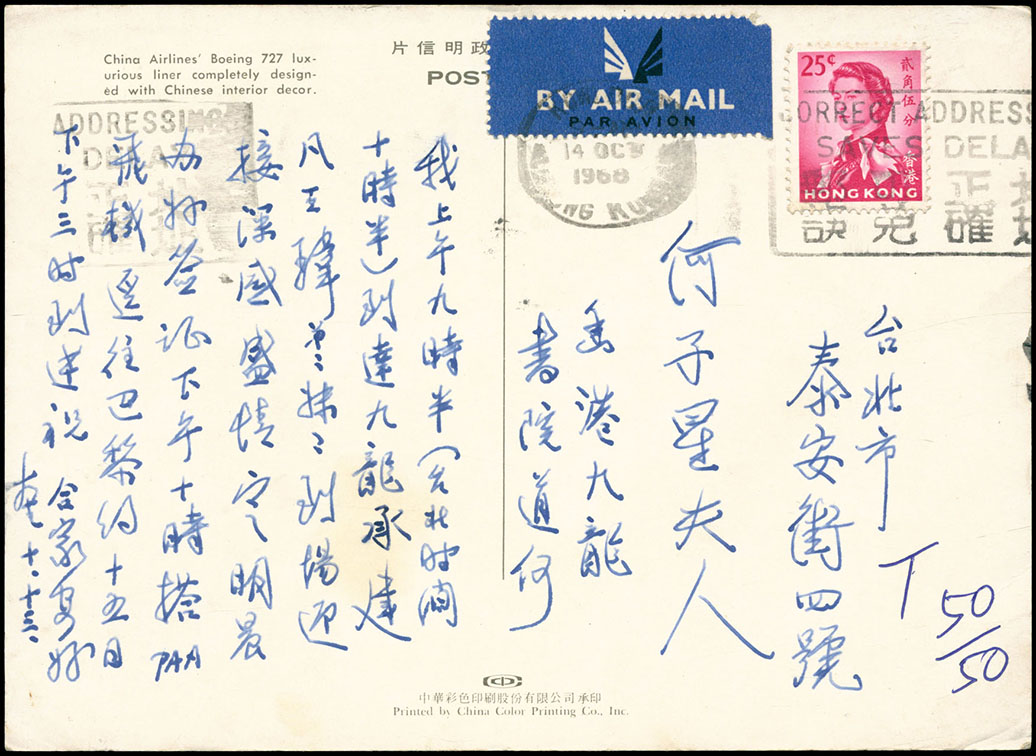 China Airlines' Boeing 727 lux-
urious liner completely design-
ed with Chinese interior decor.
片信明政
POST
BY AIR MAIL
PAR AVION
25¢
貳角伍分
香港
HONG KONG
14 OC
1968
ONG KO
CORRECT ADDRESS
SAVES DELA
正
確
免
誤
ADDRESSING
DELA
台北市
泰安街四號
何子星夫人
香港九龍
書院道何
T 50/50
我上午九時半(台北時間
十時半)到達九龍承建
凡玉瑋弟二妹二到場迎
接深感盛情定明晨
办妳签证下午十時搭PAA
飛機逕往巴黎約十五日
下午三时到達祝 合家安好
十、十三、
中華彩色印刷股份有限公司承印
Printed by China Color Printing Co., Inc.